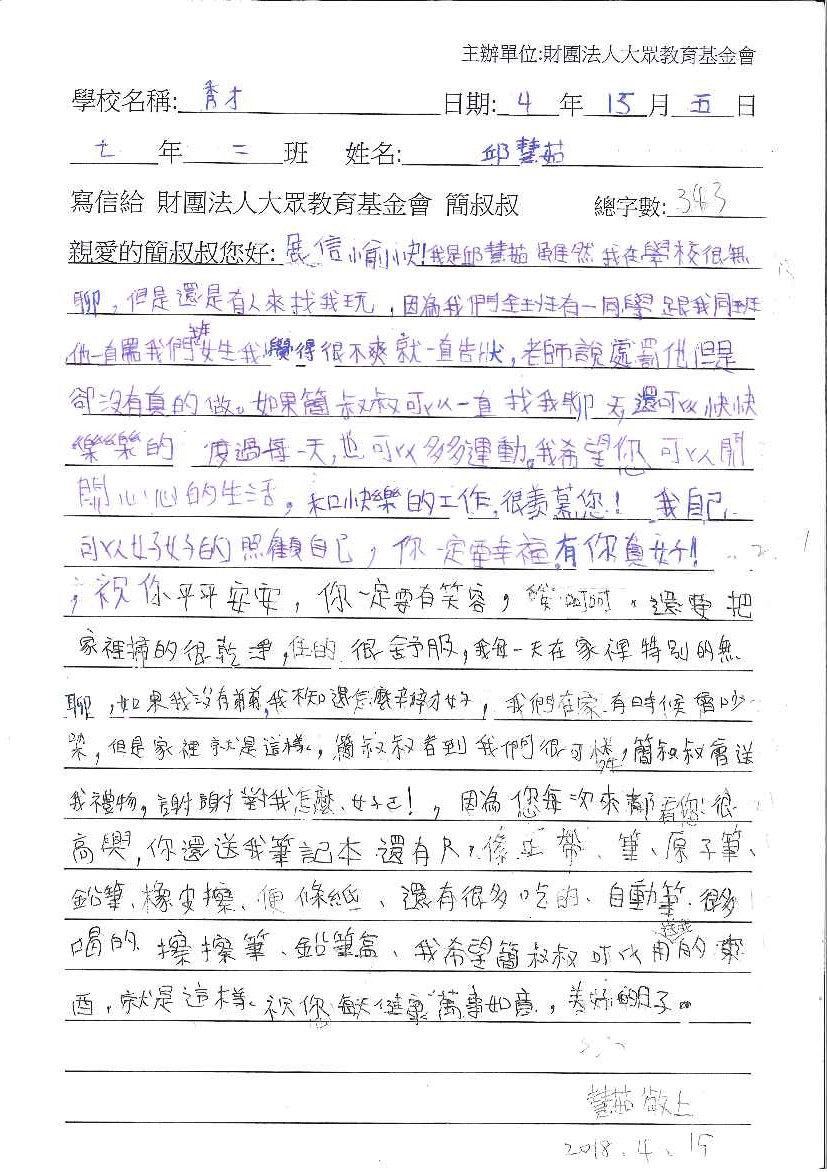 主辦單位:財團法人大眾教育基金會
學校名稱: 秀才 日期: 4 年 15 月 五 日
七 年 二 班 姓名: 邱慧茹
寫信給 財團法人大眾教育基金會 簡叔叔 總字數: 343
親愛的簡叔叔您好: 展信愉快!我是邱慧茹 雖然 我在學校很無
聊，但是還是有人來找我玩，因為我們全班有一同學 跟我同班
他一直罵我們女生我覺得很不爽 就一直告狀，老師說處罰他但是
卻沒有真的做。如果簡叔叔可以一直 找我聊天，還可以快快
樂樂的 度過每一天，也可以多多運動。我希望您 可以開
開心心的生活，和快樂的工作，很羨慕您！ 我自己
可以好好的照顧自己，你一定要幸福，有你真好！
，祝你平平安安，你一定要有笑容， 呵呵，還要把
家裡掃的很乾淨，住的很舒服，我每一天在家裡特別的無
聊，如果我沒有 我不知還怎麼 才好，我們在家有時候會吵
架，但是家裡就是這樣，簡叔叔看到我們很可憐，簡叔叔會送
我禮物，謝謝對我怎麼好！，因為您每次來都看您很
高興，你還送我筆記本 還有尺、修正帶、筆、原子筆、
鉛筆、橡皮擦、便條紙、還有很多吃的、自動筆、很多
喝的、擦擦筆、鉛筆盒、我希望簡叔叔可以用的東
西，就是這樣。祝您 每天健康 萬事如意，美好的日子。
慧茹敬上
2018.4.15